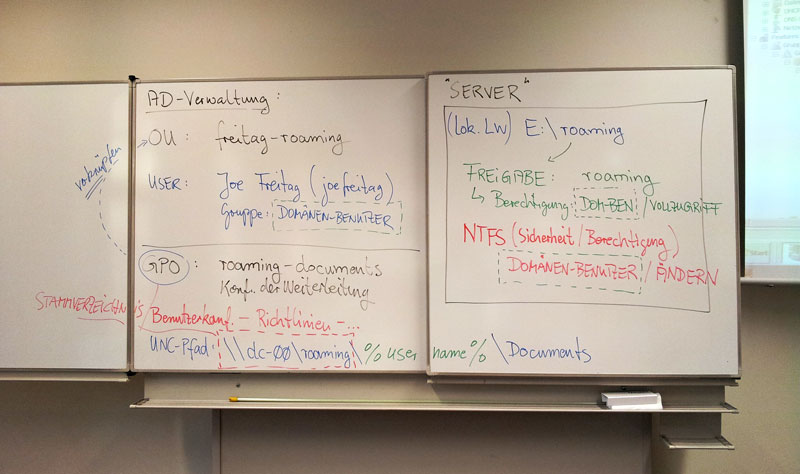 verknüpfen
AD-Verwaltung:
OU: freitag-roaming
USER: Joe Freitag (joefreitag)
Gruppe: DOMÄNEN-BENUTZER
GPO: roaming-documents
Konf. der Weiterleitung
STAMMVERZEICHNIS
Benutzerkonf. – Richtlinien – ...
UNC-Pfad: \\dc-00\roaming\%username%\Documents
"SERVER"
(lok. LW) E:\roaming
FREIGABE: roaming
↳ Berechtigung: DOM-BEN / VOLLZUGRIFF
NTFS (Sicherheit/Berechtigung)
DOMÄNEN-BENUTZER / ÄNDERN
Start